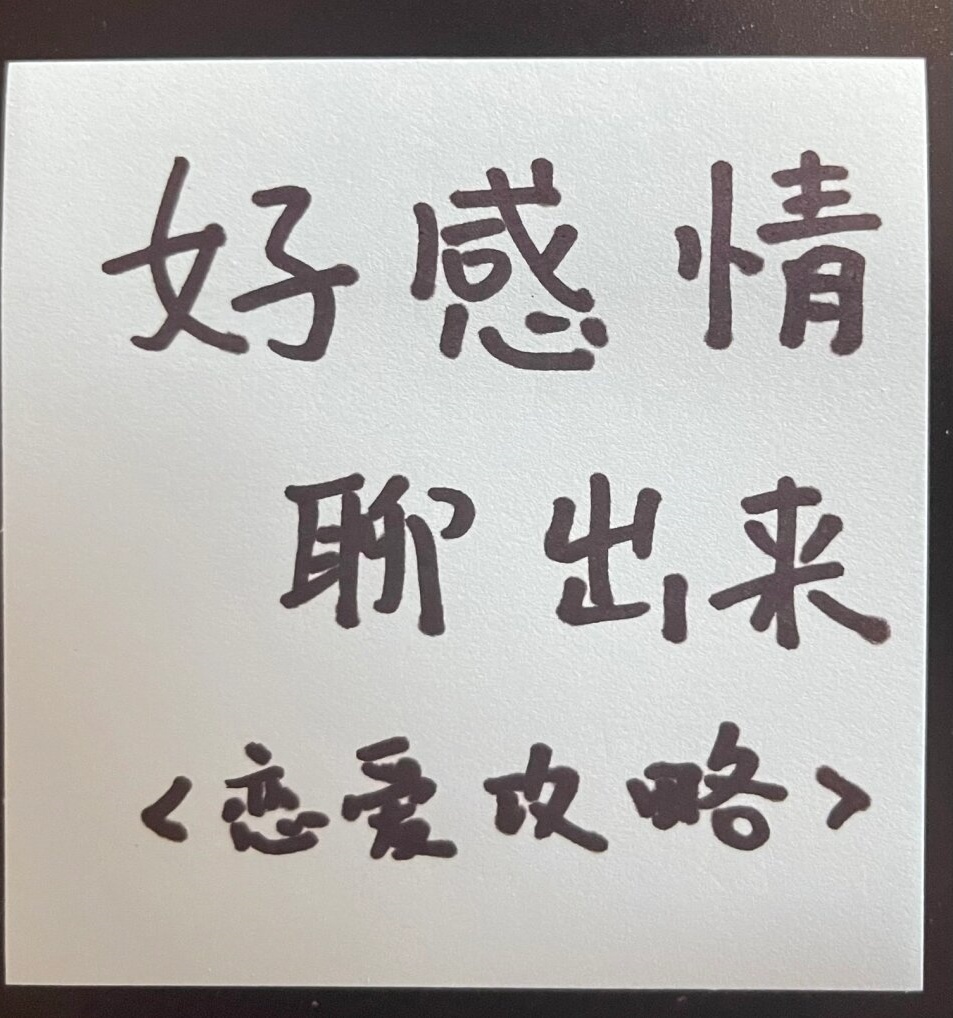 好感情
聊出来
<恋爱攻略>